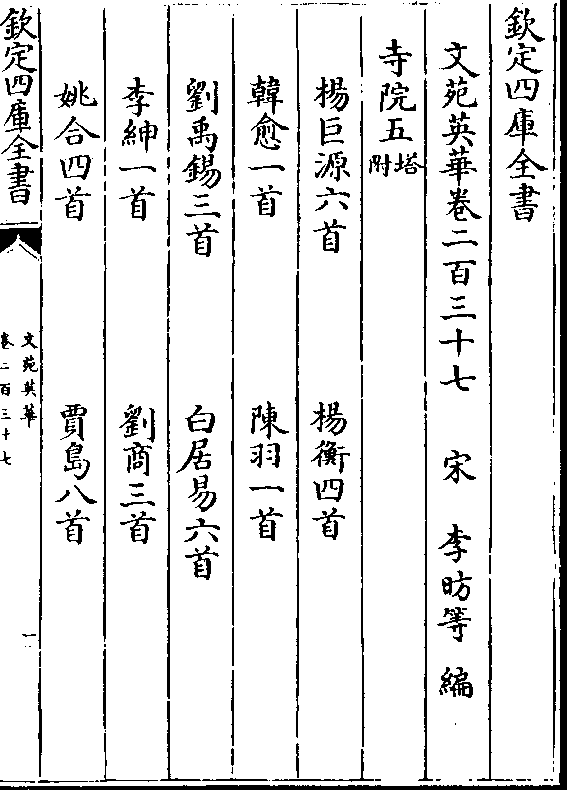 欽定四庫全書
文苑英華卷二百三十七 宋 李昉等 編
寺院五附塔
楊巨源六首 楊衡四首
韓愈一首 陳羽一首
劉禹錫三首 白居易六首
李紳一首 劉商三首
姚合四首 賈島八首
欽定四庫全書
文苑英華
卷二百三十七
一